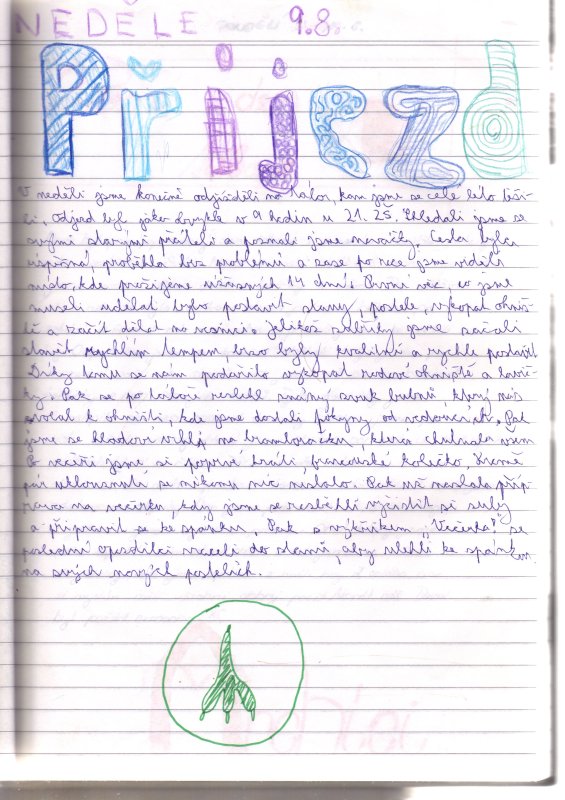 NEDĚLE 9.8
Příjezd
V neděli jsme konečně odjížděli na tábor, kam jsme se celé léto těši-
li. Odjezd byl jako obvykle v 9 hodin u 21. ZŠ. Shledali jsme se
svými starými přáteli a poznali jsme nováčky. Cesta byla
úspěšná, proběhla bez problémů a zase po roce jsme viděli
místo, kde prožijeme úžasných 14 dní. První věc, co jsme
museli udělat bylo postavit stany, postele, vykopat ohniš-
tě a začít dělat na vesnici. Jelikož jsme začali
stavit rychlým tempem, byly kvalitní a rychle postavit.
Díky tomu se nám podařilo vykopat rodové ohniště a lavič-
ky. Pak se po táboře rozlehl známý zvuk bubnů, který nás
svolal k ohništi, kde jsme dostali pokyny od vedoucích. Pak
jsme se hladově vrhli na bramboračku, která chutnala všem
Po večeři jsme si poprvé hráli, francouzské kolečko. Kromě
pár uklouznutí se nikomu nic nestalo. Pak už nastala příp-
rava na večerku, kdy jsme se rozběhli vyčistit si zuby
a připravit se ke spánku. Pak s výkřikem "Večerka" se
poslední opozdilci vraceli do stanů, aby ulehli ke spánku
na svých nových postelích.